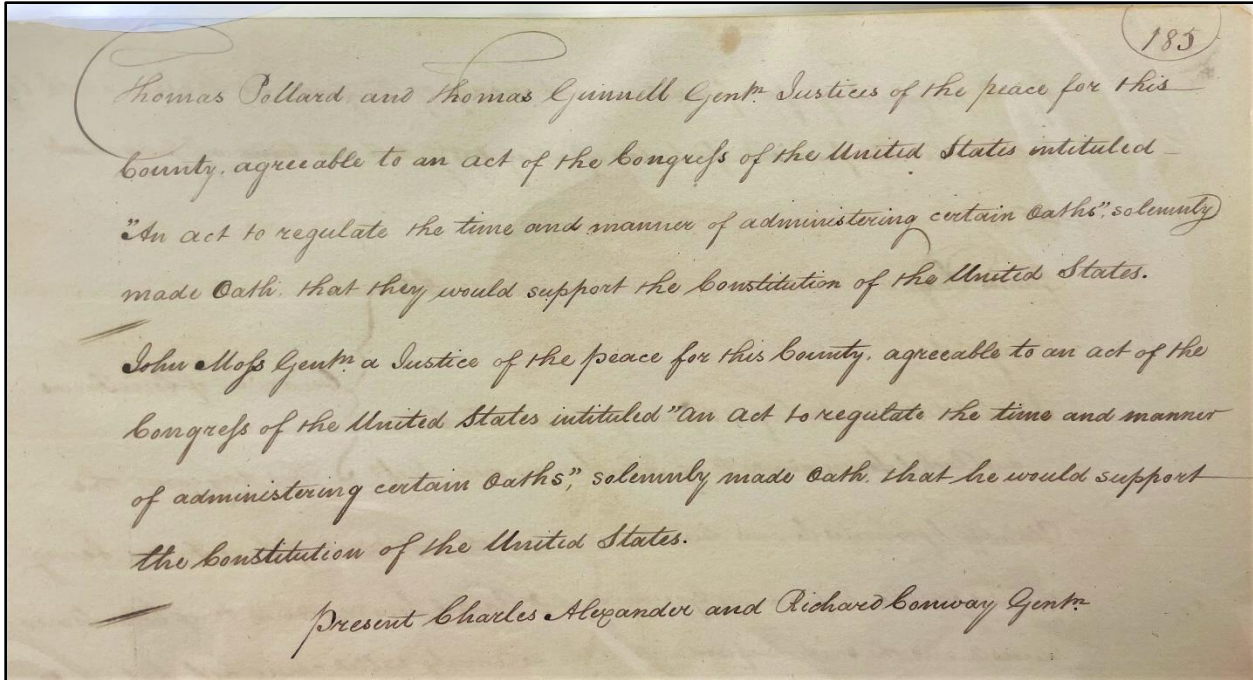 185
Thomas Pollard and Thomas Gunnell Gentn. Justices of the peace for this
County. agreeable to an act of the Congreſs of the United States intituled
"An act to regulate the time and manner of administering certain Oaths", solemnly
made Oath. that they would support the Constitution of the United States.
John Moſs Gentn. a Justice of the peace for this County. agreeable to an act of the
Congreſs of the United States intituled "an act to regulate the time and manner
of administering certain Oaths", solemnly made Oath. that he would support
the Constitution of the United States.
Present Charles Alexander and Richard Conway Gentn.